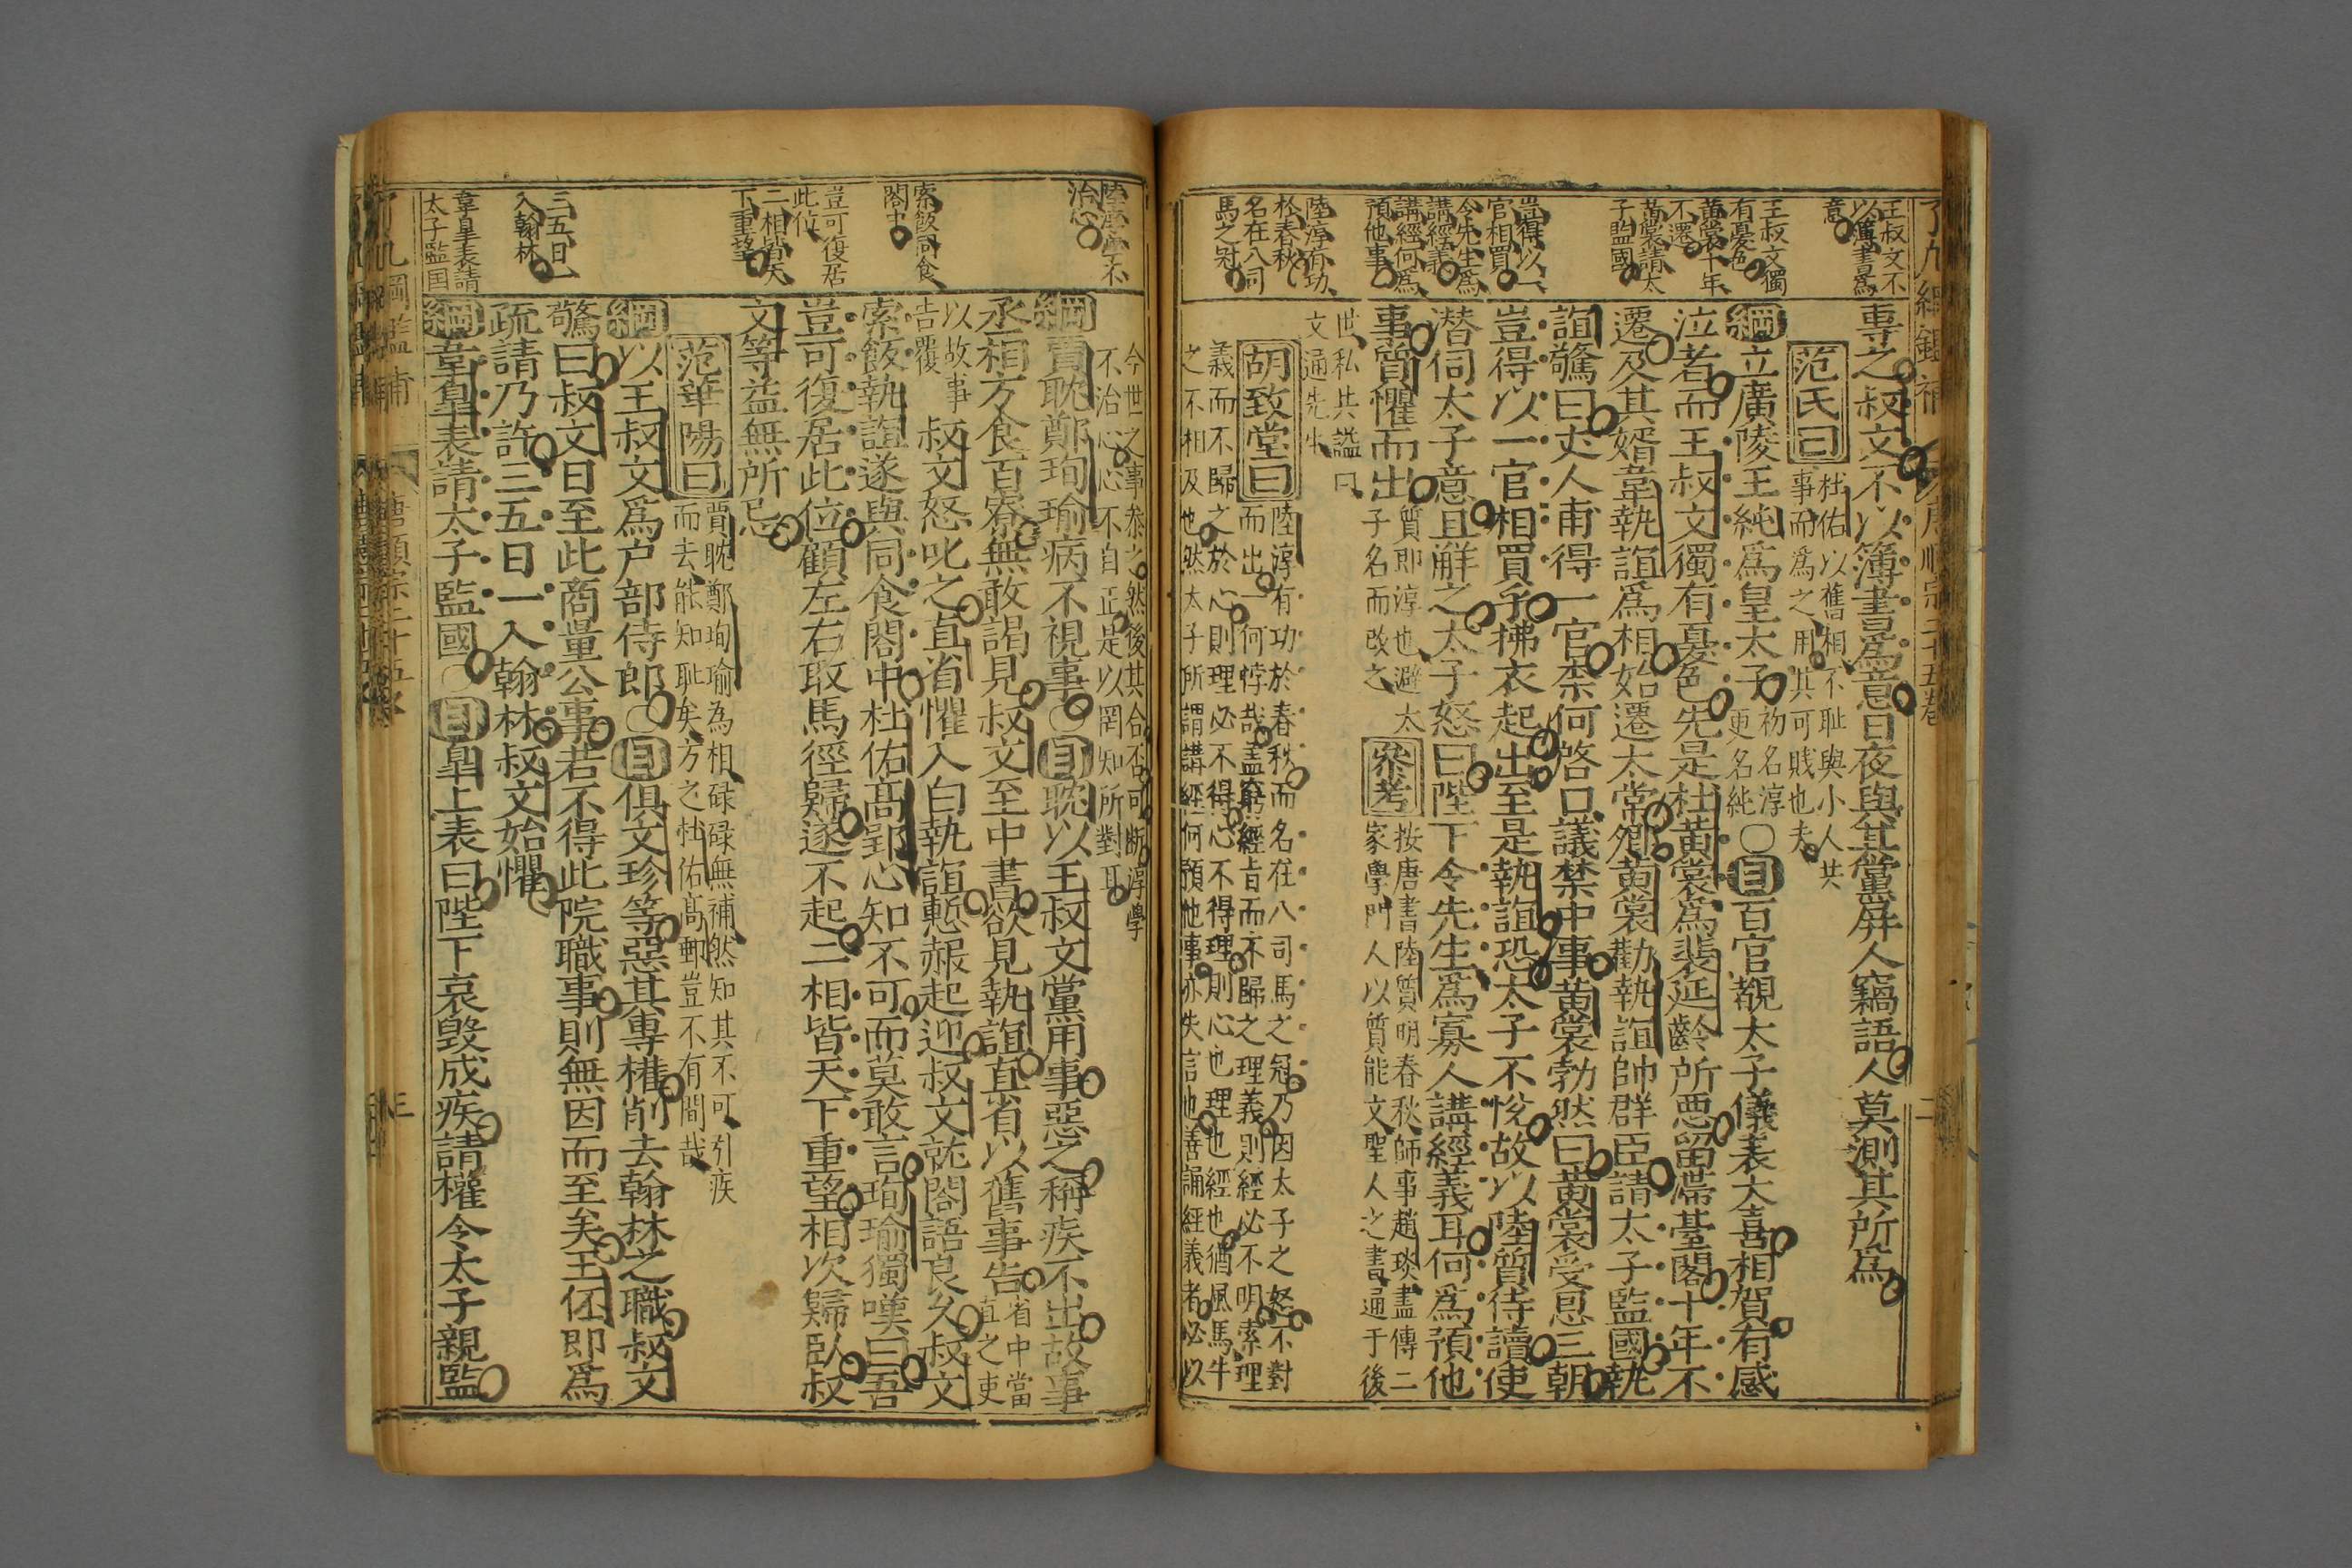 王叔文不
以簿書爲
意
王叔文獨
有憂色
黃裳十年
不遷
黃裳請太
子監國
豈得以一
官相買
令先生爲
講經義
講經何爲
預他事
陸淳有功
於春秋
名在八司
馬之冠
專之叔文不以簿書爲意日夜與其黨屏人竊語人莫測其所爲
范氏曰
杜佑以舊相不耻與小人共
事而爲之用其可賤也夫
綱立廣陵王純爲皇太子
初名淳
更名純
〇目百官覩太子儀表大喜相賀有感
泣者而王叔文獨有憂色先是杜黃裳爲裴延齡所惡留滯臺閣十年不
遷及其婿韋執誼爲相始遷太常卿黃裳勸執誼帥群臣請太子監國執
誼驚曰丈人甫得一官柰何啓口議禁中事黃裳勃然曰黃裳受恩三朝
豈得以一官相買乎拂衣起出至是執誼恐太子不悅故以陸質侍讀使
潜伺太子意且解之太子怒曰陛下令先生爲寡人講經義耳何爲預他
事質懼而出
質即淳也避太
子名而改之
參考
按唐書陸質明春秋師事趙琰盡傳二
家學門人以質能文聖人之書通于後
世私共謚曰
文通先生
胡致堂曰
陸淳有功於春秋而名在八司馬之冠乃因太子之怒不對
而出一何悖哉蓋窮經旨而不歸之理義則經必不明索理
義而不歸之於心則理必不得心不得理則心也理也經也猶風馬牛
之不相及也然太子所謂講經何預他事亦失言也善誦經義者必以
陸淳學不
治心
索飯同食
閣中
豈可復居
此位
二相皆天
下重望
三五日一
入翰林
韋臯表請
太子監国
今世之事叅之然後其合否可断淳學
不治心心不自正是以罔知所對耳
綱賈耽鄭珣瑜病不視事〇目耽以王叔文黨用事惡之稱疾不出故事
丞相方食百寮無敢謁見叔文至中書欲見執誼直省以舊事告
省中當
直之吏
以故事
告覆
叔文怒叱之直省懼入白執誼慙赧起迎叔文就閣語良久叔文
索飯執誼遂與同食閣中杜佑高郢心知不可而莫敢言珣瑜獨嘆曰吾
豈可復居此位顧左右取馬徑歸遂不起二相皆天下重望相次歸臥叔
文等益無所忌
范華陽曰
賈耽鄭珣瑜為相碌碌無補然知其不可引疾
而去能知耻矣方之杜佑高郢豈不有間哉
綱以王叔文爲户部侍郎〇目俱文珍等惡其專權削去翰林之職叔文
驚曰叔文日至此商量公事若不得此院職事則無因而至矣王伾即爲
疏請乃許三五日一入翰林叔文始懼
綱韋臯表請太子監國〇目臯上表曰陛下哀毁成疾請權令太子親監